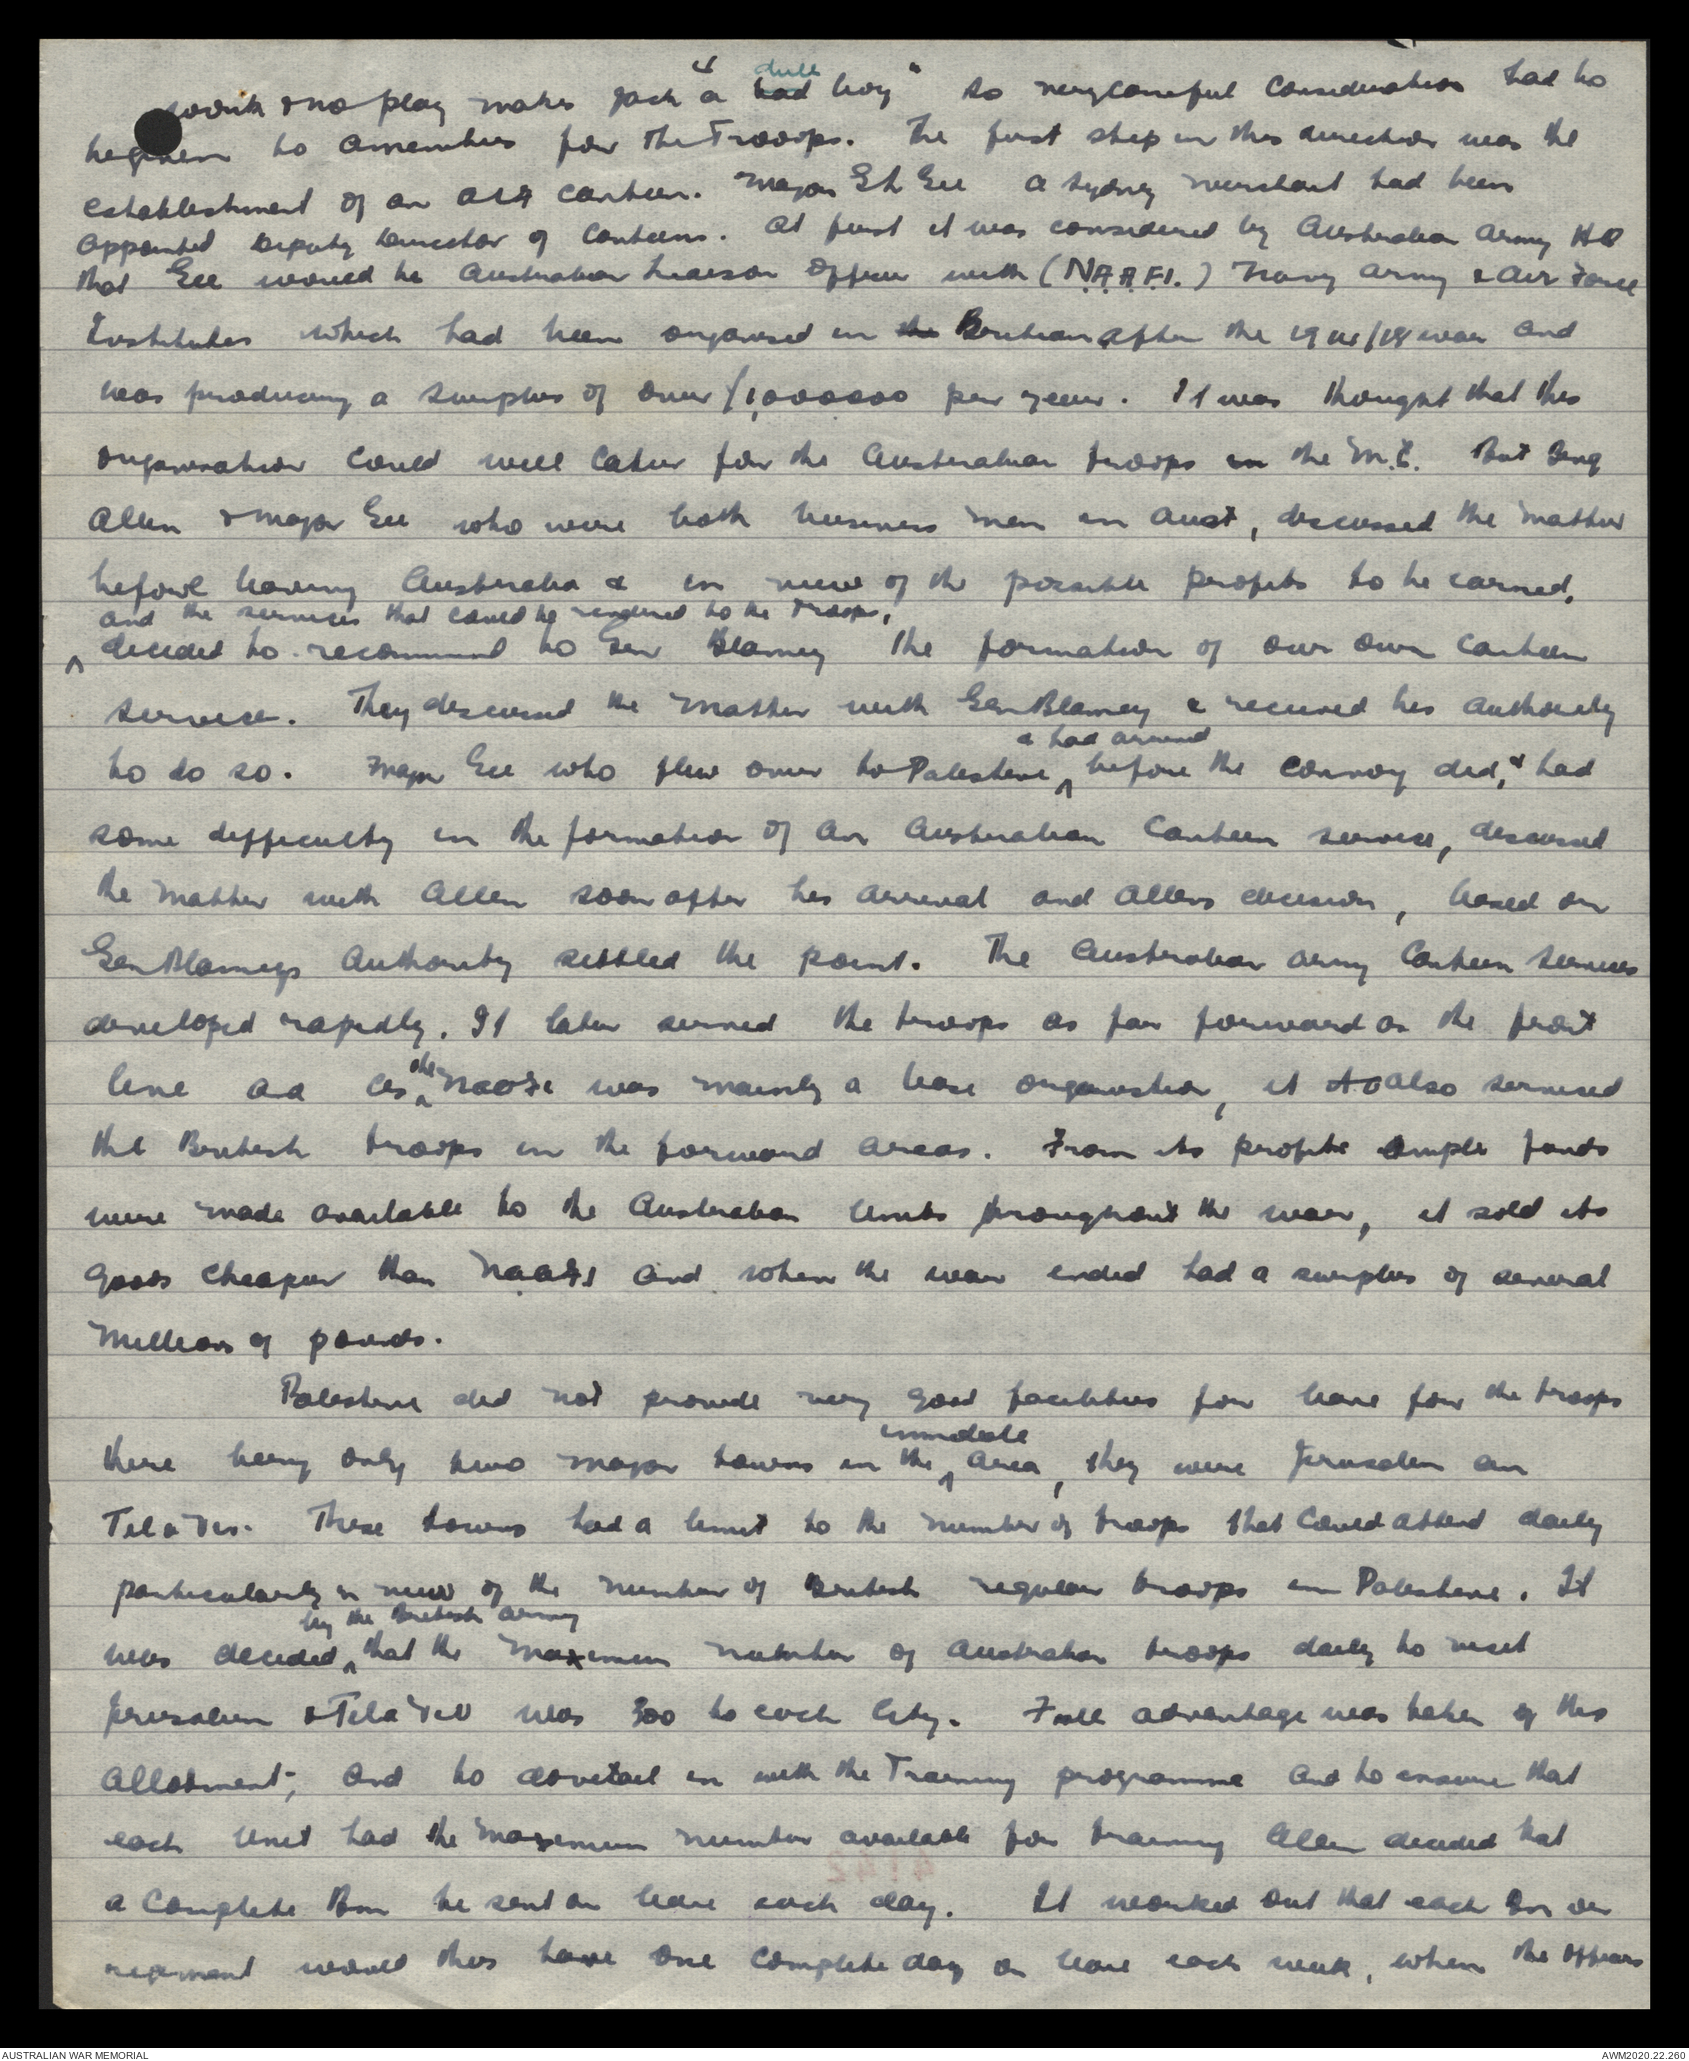 work & no play makes Jack a "dull bad boy" so very careful consideration had to
be given to amenities for the Troops. The first step in this direction was the
establishment of an AIF canteen. Major Gee a Sydney merchant had been
appointed Deputy Director of Canteens. At first it was considered by Australian Army HQ
that Gee would be Australian Liaison Officer with (N.A.A.F.I.) Navy Army & Air Force
Institutes which had been organised in the Britain after the 1914/18 war and
was producing a surplus of over £1,000000 per year. It was thought that this
organisation could well cater for the Australian troops in the M.E. But Brig
Allen & Major Gee who were both business men in Aust, discussed the matter
before leaving Australia & in view of the possible profits to be earned,
and the services that could be rendered to the Troops,
^ decided to recommend to Gen Blamey the formation of our own canteen
service. They discussed the matter with Gen Blamey & received his authority
& had arrived
to do so. Major Gee who flew over to Palestine ^ before the convoy did, & had
some difficulty in the formation of an Australian Canteen service, discussed
the matter with Allen soon after his arrival and Allens decision, based on
Gen Blameys Authority settled the point. The Australian Army Canteen Services
developed rapidly. It later served the troops as far forward as the front
line and as ^ the NAAFI was mainly a base organisation, it to also serviced
the British troops in the forward areas. From its profits ample funds
were made available to the Australian Units throughout the war, it sold its
goods cheaper than NAAFI and when the war ended had a surplus of several
millions of pounds.
Palestine did not provide very good facilities for leave for the troops
immediate
there being only two major towns in the ^ area, they were Jerusalem an
Tel a Viv. These towns had a limit to the number of troops that could attend daily
particularly in view of the number of British regular troops in Palestine. It
by the British Army
was decided ^ that the maximum number of Australian troops daily to visit
Jerusalem & Tel a Viv was 300 to each City. Full advantage was taken of this
allotment, and to dovetail in with the Training programme and to ensure that
each Unit had the maximum number available for training Allen decided that
a complete Bn be sent on leave each day. It worked out that each Bn or
regiment would thus have one complete day on leave each week, when the officers
AUSTRALIAN WAR MEMORIAL
AWM2020.22.260